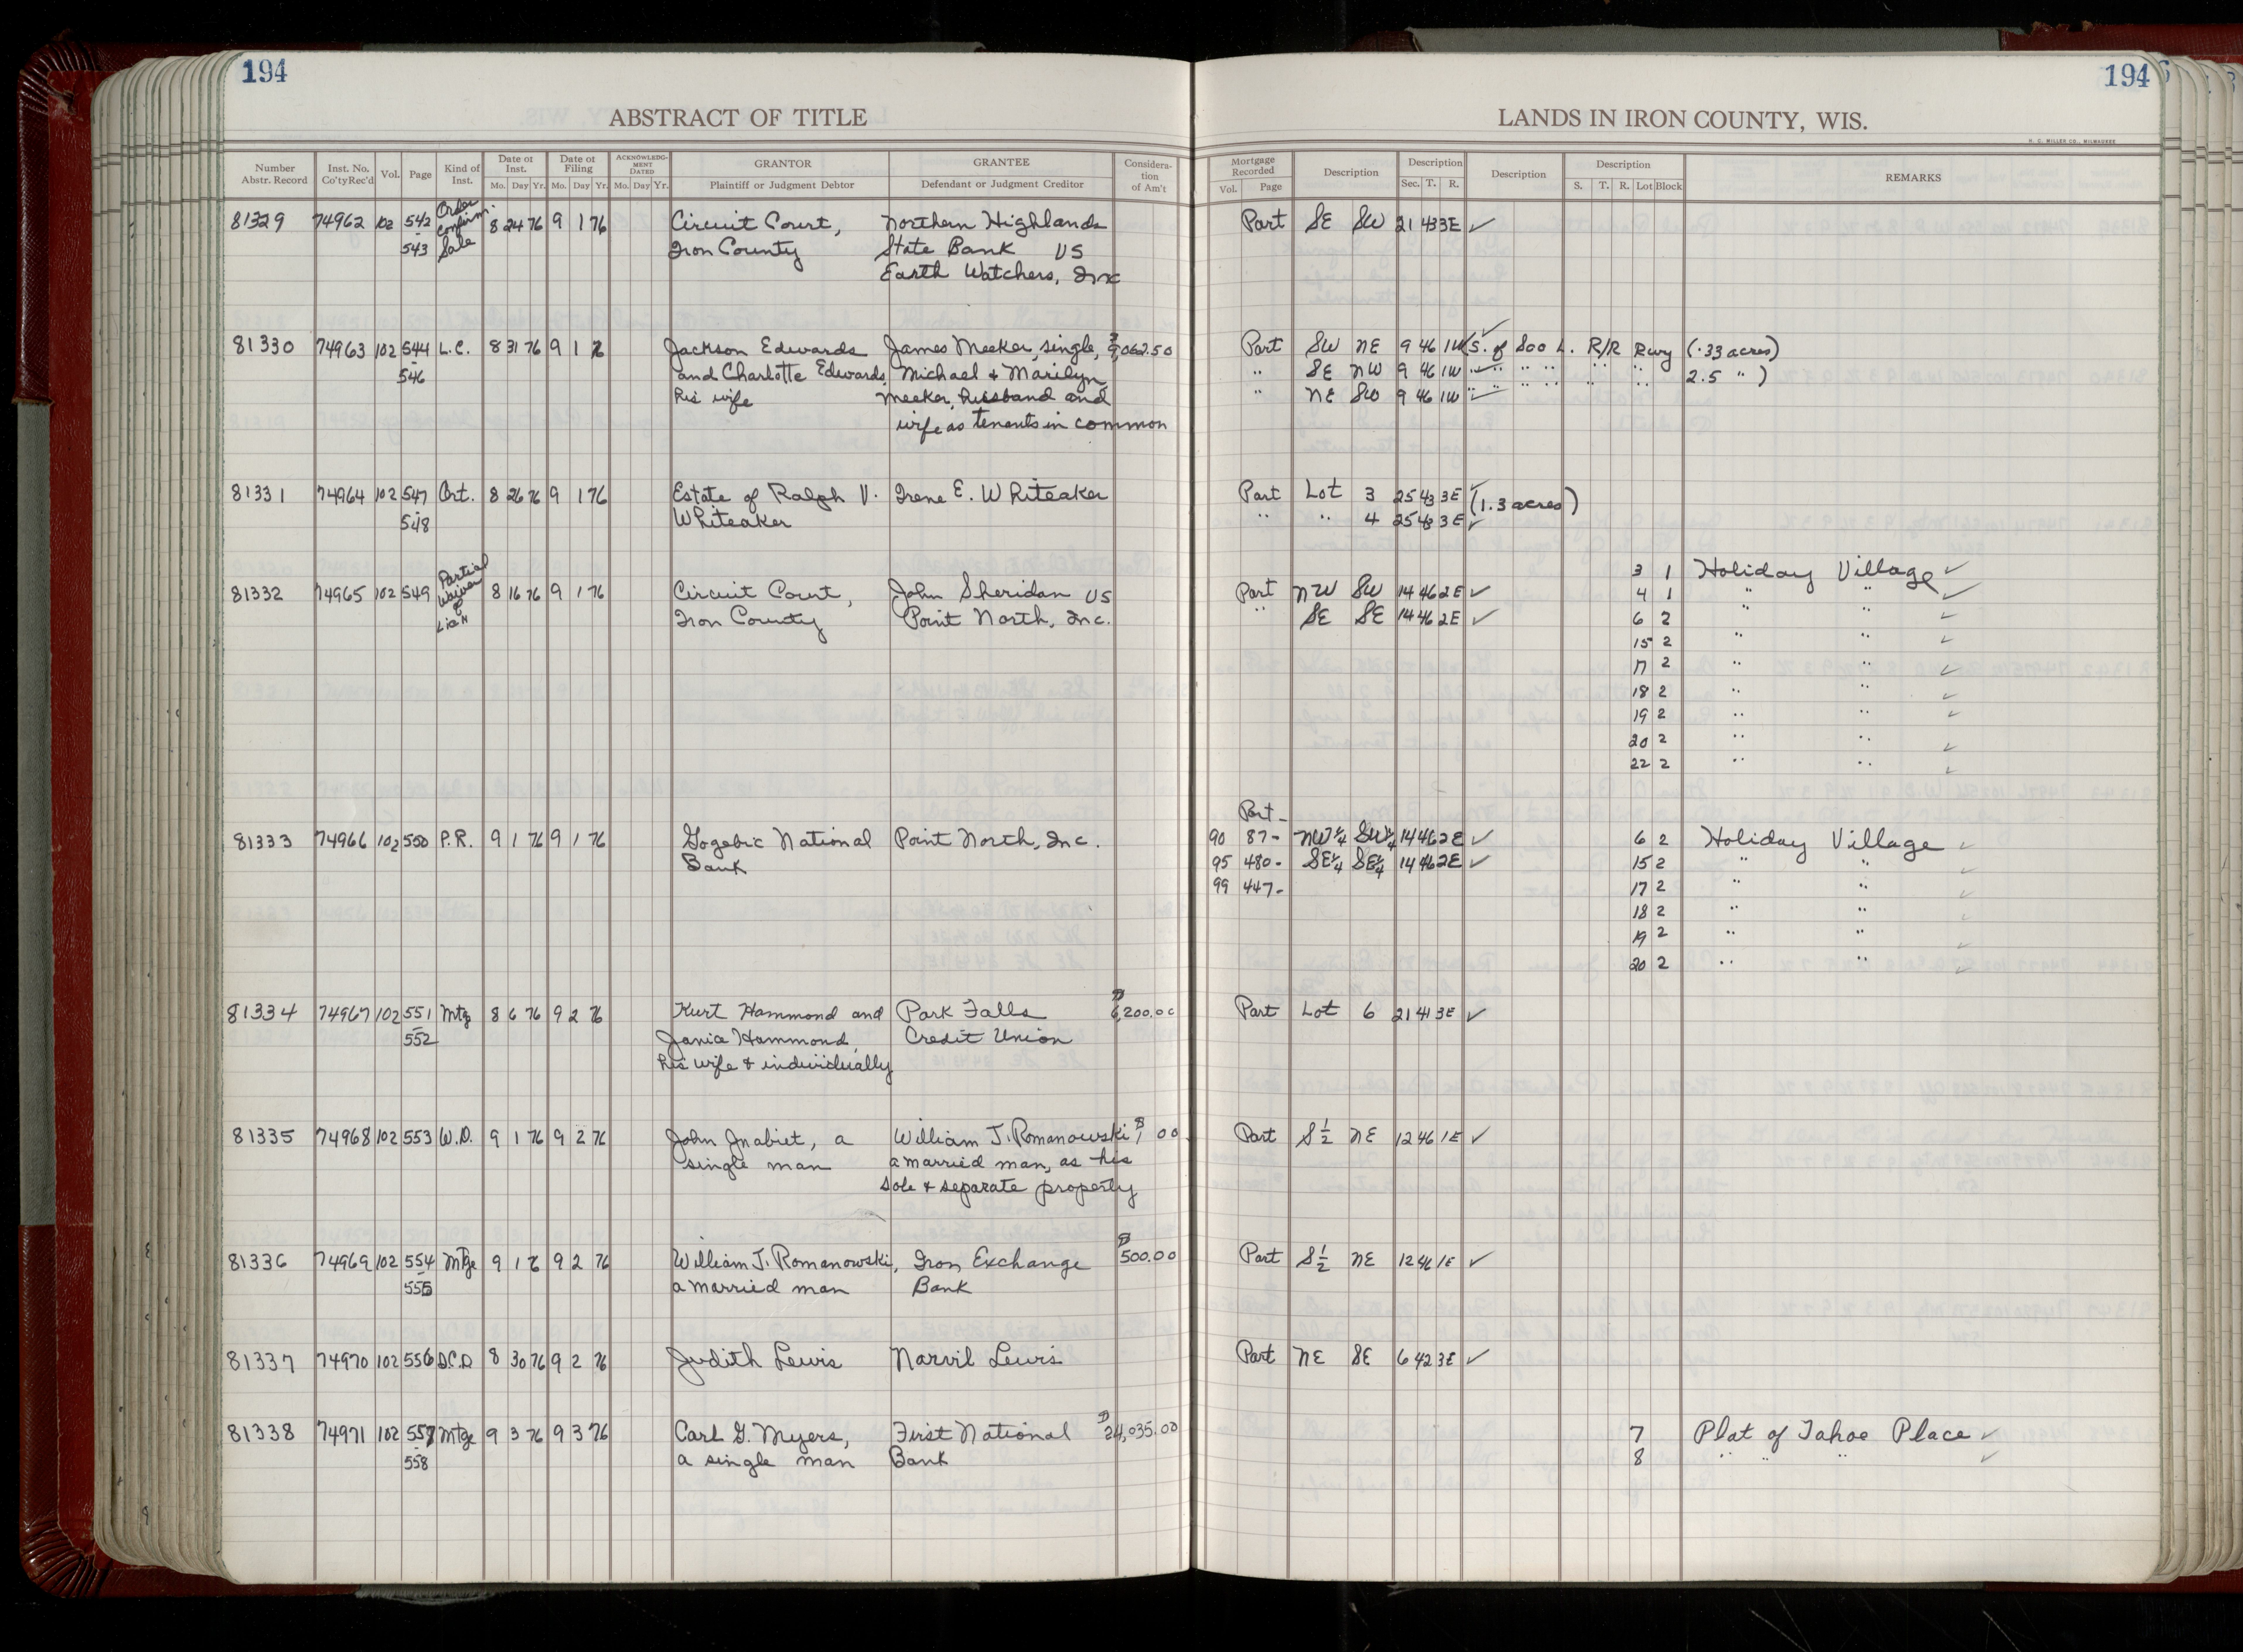 194
194
ABSTRACT OF TITLE
LANDS IN IRON COUNTY, WIS.
H. C. MILLER CO., MILWAUKEE
Number Abstr. Record Inst. No. Co'ty Rec'd Vol. Page Kind of Inst. Date of Inst. Mo. Day Yr. Date of Filing Mo. Day Yr. ACKNOWLEDGMENT DATED Mo. Day Yr. GRANTOR Plaintiff or Judgment Debtor GRANTEE Defendant or Judgment Creditor Consideration of Am't Mortgage Recorded Vol. Page Description Description Sec. T. R. Description Description S. T. R. Lot Block REMARKS
81329 74962 102 542 Order confirm. Sale 8 24 76 9 1 76 Circuit Court, Northern Highlands Part SE SW 21 43 3E ✓
- 543 Iron County State Bank VS
Earth Watchers, Inc
81330 74963 102 544 L.C. 8 31 76 9 1 76 Jackson Edwards James Meeker, single, $9,062.50 Part SW NE 9 46 1W ✓ (S. of Soo L. R/R Rwy (.33 acres)
- 546 and Charlotte Edwards, Michael & Marilyn " SE NW 9 46 1W ✓ " " " " " " 2.5 " )
his wife Meeker, husband and " NE SW 9 46 1W ✓ " " " " " "
wife as tenants in common
81331 74964 102 547 Crt. 8 26 76 9 1 76 Estate of Ralph V. Irene E. Whiteaker Part Lot 3 25 43 3E ✓ (1.3 acres)
- 548 Whiteaker " " 4 25 43 3E ✓
3 1 Holiday Village ✓
81332 74965 102 549 Partial Waiver of Lien 8 16 76 9 1 76 Circuit Court, John Sheridan VS Part NW SW 14 46 2E ✓ 4 1 " " ✓
Iron County Point North, Inc. " SE SE 14 46 2E ✓ 6 2 " " ✓
15 2 " " ✓
17 2 " " ✓
18 2 " " ✓
19 2 " " ✓
20 2 " " ✓
22 2 " " ✓
Part-
81333 74966 102 550 P.R. 9 1 76 9 1 76 Gogebic National Point North, Inc. 90 87- NW¼ SW¼ 14 46 2E ✓ 6 2 Holiday Village ✓
Bank 95 480- SE¼ SE¼ 14 46 2E ✓ 15 2 " " ✓
99 447- 17 2 " " ✓
18 2 " " ✓
19 2 " " ✓
20 2 " " ✓
81334 74967 102 551 Mtg 8 6 76 9 2 76 Kurt Hammond and Park Falls $6,200.00 Part Lot 6 21 41 3E ✓
- 552 Janice Hammond, Credit Union
his wife & individually
81335 74968 102 553 W.D. 9 1 76 9 2 76 John Jnabiet, a William J. Romanowski $1 00 Part S½ NE 12 46 1E ✓
single man a married man, as his
sole & separate property
81336 74969 102 554 Mtge 9 1 76 9 2 76 William J. Romanowski, Iron Exchange $500.00 Part S½ NE 12 46 1E ✓
- 555 a married man Bank
81337 74970 102 556 Q.C.D. 8 30 76 9 2 76 Judith Lewis Narvil Lewis Part NE SE 6 42 3E ✓
81338 74971 102 557 Mtge 9 3 76 9 3 76 Carl G. Myers, First National $24,035.00 7 Plat of Tahoe Place ✓
- 558 a single man Bank 8 " " " ✓